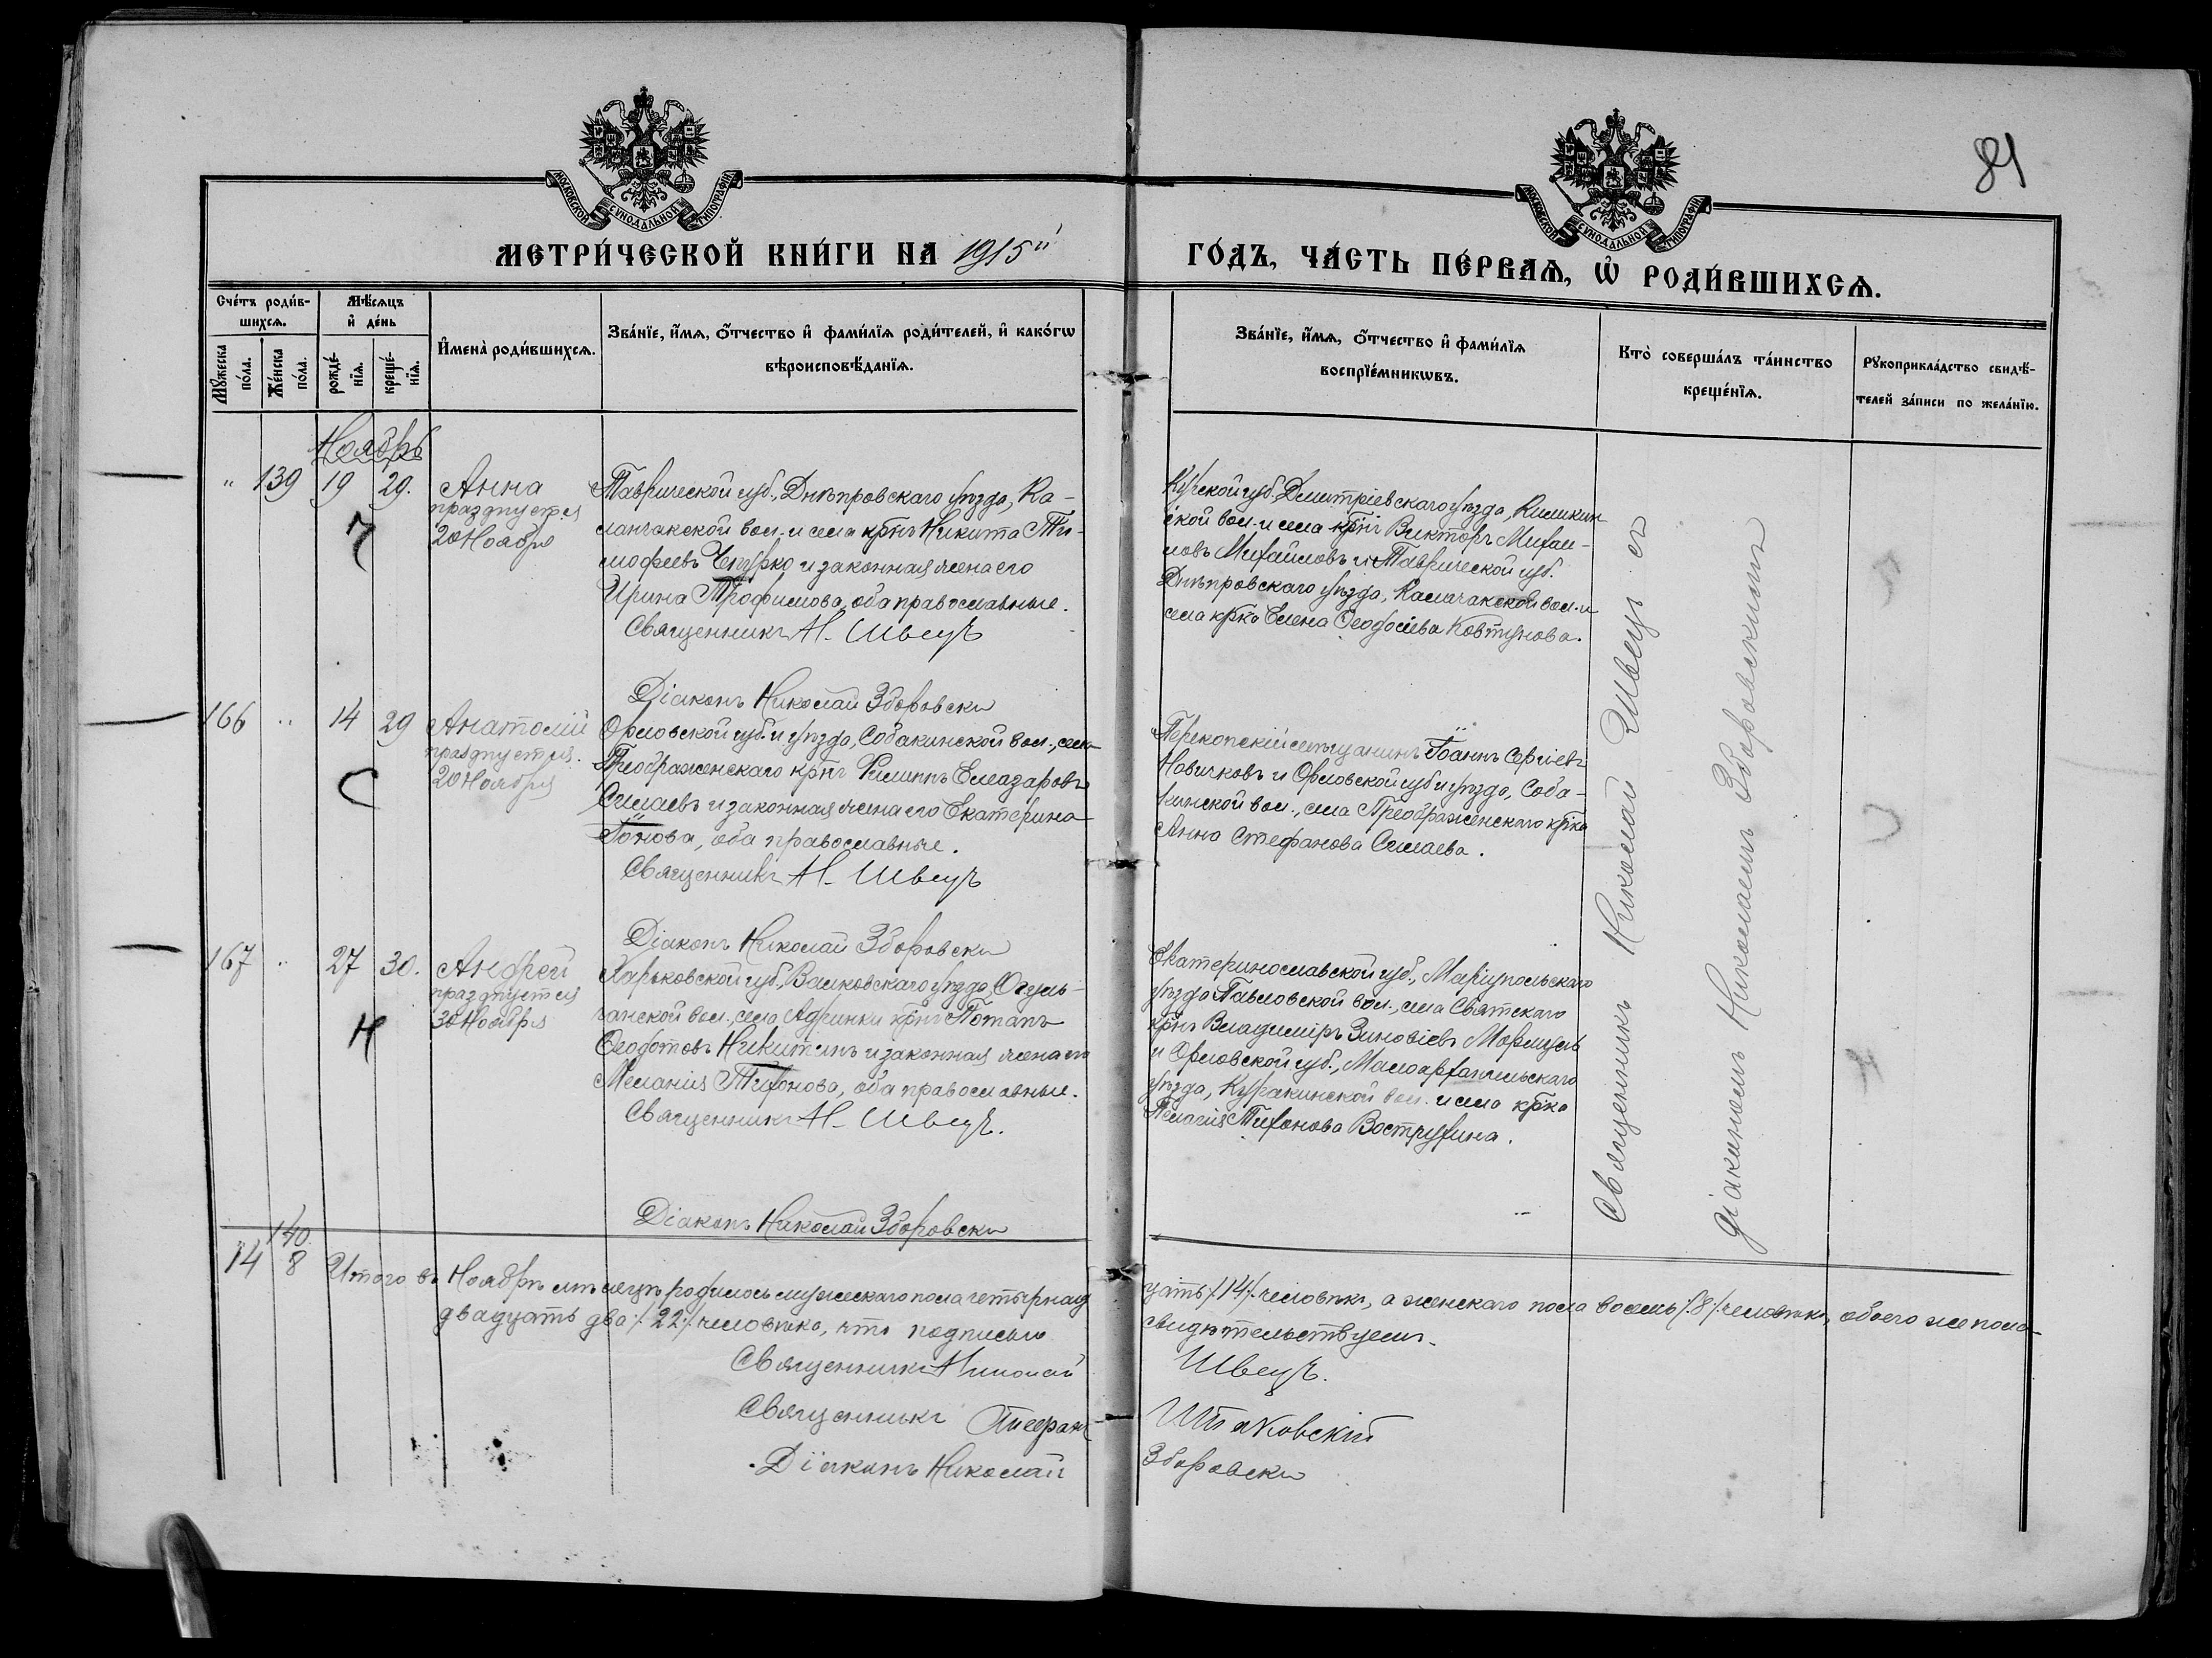 81
МОСКОВСКОЙ СУНОДАЛЬНОЙ ТИПОГРАФІИ
МОСКОВСКОЙ СУНОДАЛЬНОЙ ТИПОГРАФІИ
МЕТРИ́ЧЕСКОЙ КНИ́ГИ НА 1915й
ГО́ДЪ, ЧА́СТЬ ПЕ́РВАѦ, Ѡ҆ РОДИ́ВШИХСѦ.
Сче́тъ роди́в-
шихсѧ.
Мѣ́сѧцъ
и҆ де́нь
Мꙋ́жеска
по́ла.
Же́нска
по́ла.
рожде́-
нїѧ.
креще́-
нїѧ.
И҆мена̀ роди́вшихсѧ.
Зва́нїе, и҆́мѧ, ѻ҆́тчество и҆ фами́лїѧ роди́телей, и҆ како́гѡ
вѣроисповѣ́данїѧ.
Зва́нїе, и҆́мѧ, ѻ҆́тчество и҆ фами́лїѧ
воспрїе́мникѡвъ.
Кто̀ соверша́лъ та́инство
креще́нїѧ.
Рꙋкоприкла́дство свидѣ́-
телей за́писи по жела́нїю.
Ноябрь
" 139 19 29. Анна
празднуется
20 Ноября
Таврической губ., Днѣпровскаго уѣзда, Ка-
ланчакской вол. и села крнъ Никита Ти-
мофеевъ Чепурко и законная жена его
Ирина Трофимова, оба православные.
Священникъ Н. Швецъ
Діаконъ Николай Зборовски
Курской губ., Дмитріевскаго уѣзда, Кишкин
ской вол. и села крнъ Викторъ Михаи-
ловъ Михайловъ и Таврической губ.
Днѣпровскаго уѣзда, Каланчакской вол. и
села крка Елена Ѳеодосіева Ковтунова.
166 " 14 29 Анатолій
празднуется.
20 Ноября
Орловской губ. и уѣзда, Собакинской вол., села
Преображенскаго крнъ Филиппъ Елеазаровъ
Силаевъ и законная жена его Екатерина
Іонова, оба православные.
Священникъ Н. Швецъ
Діаконъ Николай Зборовски
Перекопскій мѣщанинъ Іоаннъ Сергіевъ
Новичковъ и Орловской губ. и уѣзда, Соба-
кинской вол., села Преображенскаго крка
Анна Стефанова Силаева.
167 " 27 30. Андрей
празднуется
30 Ноября
Харьковской губ., Валковскаго уѣзда, Огуль-
чанской вол., села крнъ Потапъ
Ѳеодотовъ Никитинъ и законная жена его
Меланія Тихонова, оба православные.
Священникъ Н. Швецъ.
Діаконъ Николай Зборовски
Екатеринославской губ., Маріупольскаго
уѣзда Павловской вол., села Святскаго
крнъ Владиміръ Зиновіевъ
и Орловской губ., Малоархангельскаго
уѣзда, Куракинской вол. и села крка
Пелагія Тихонова Вострухина.
Священникъ Николай Швецъ съ
діакономъ Николаемъ Зборовскимъ
140.
14 8 Итого въ Ноябрѣ мѣсяцѣ родилось мужескаго пола четырнад
цать /.14/. человѣкъ, а женскаго пола восемь /.8/. человѣкъ, обоего же пола
двадцать два /.22/. человѣка, что подписью
свидѣтельствуемъ.
Священникъ Николай Швецъ.
Священникъ
Діаконъ Николай Зборовски